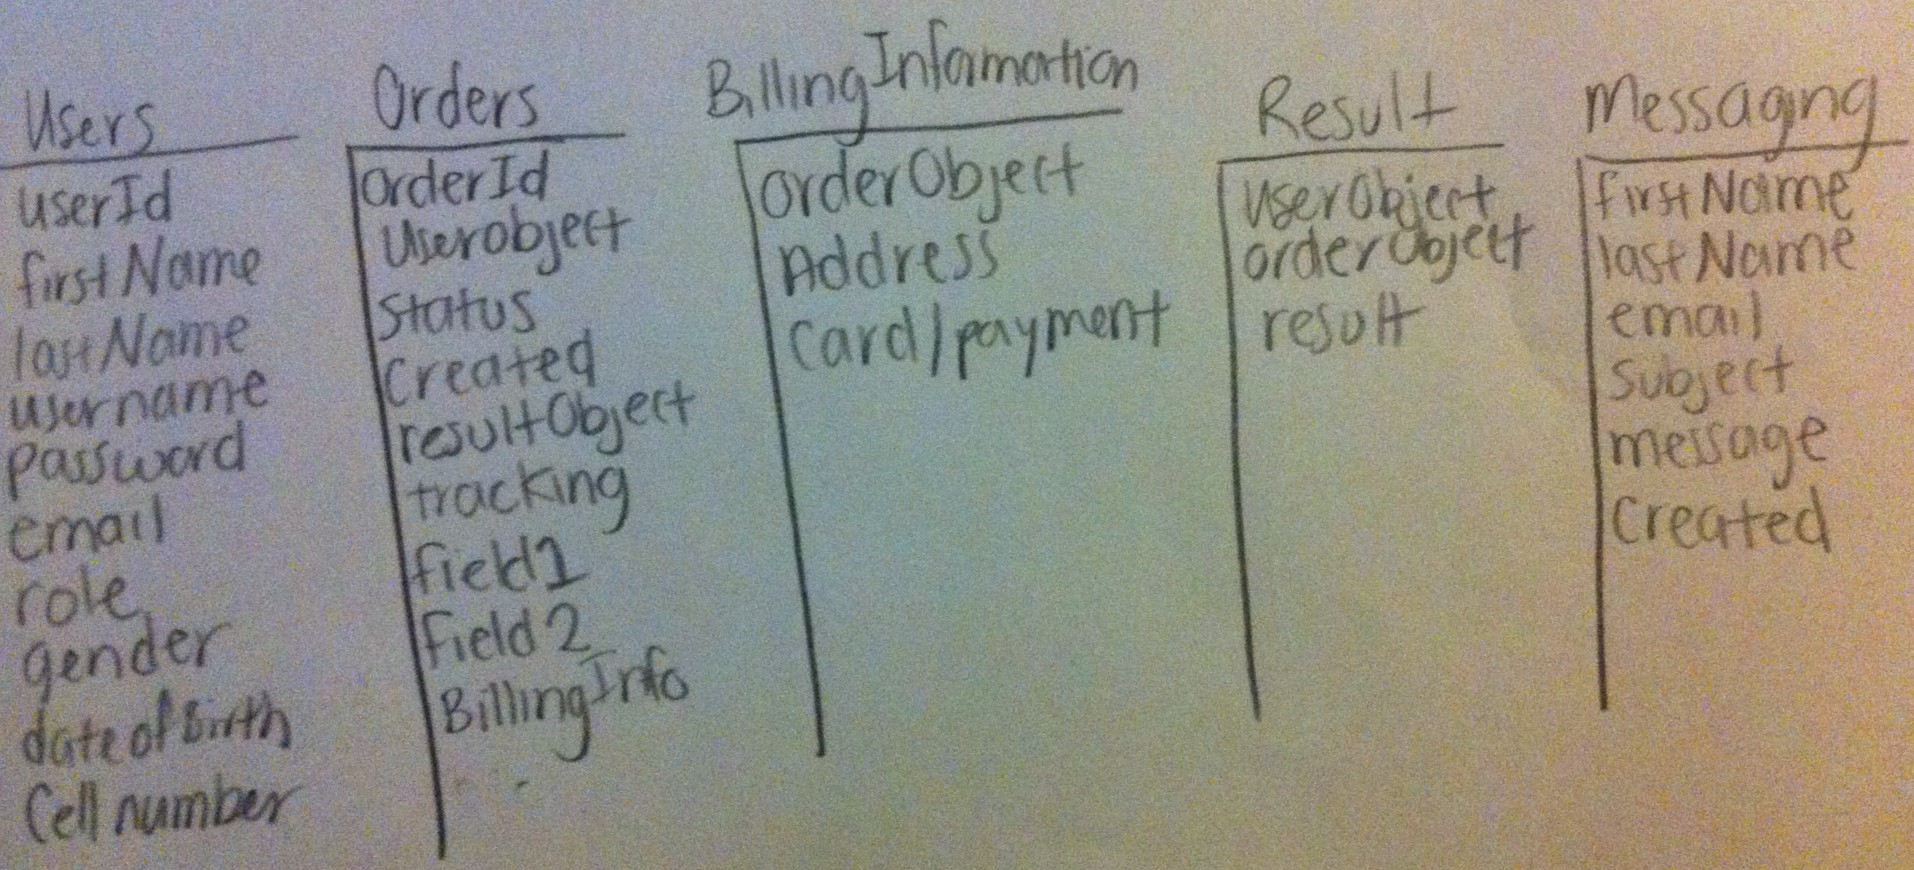 Users
userId
firstName
lastName
username
password
email
role
gender
dateofBirth
Cell number
Orders
OrderId
Userobject
Status
Created
resultObject
tracking
field1
field2
BillingInfo
BillingInformation
orderObject
Address
Card/payment
Result
userObject
orderObject
result
Messaging
firstName
lastName
email
Subject
message
Created